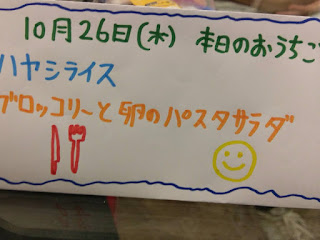 10月26日(木) 本日のおうちご
ハヤシライス
ブロッコリーと卵のパスタサラダ